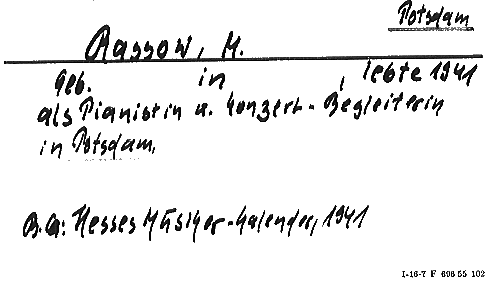 Potsdam
Rassow, M.
Geb. in , lebte 1941
als Pianistin u. Konzert-Begleiterin
in Potsdam.
B.A: Hesses Musiker-Kalender, 1941
I-16-7 F 696 55 102